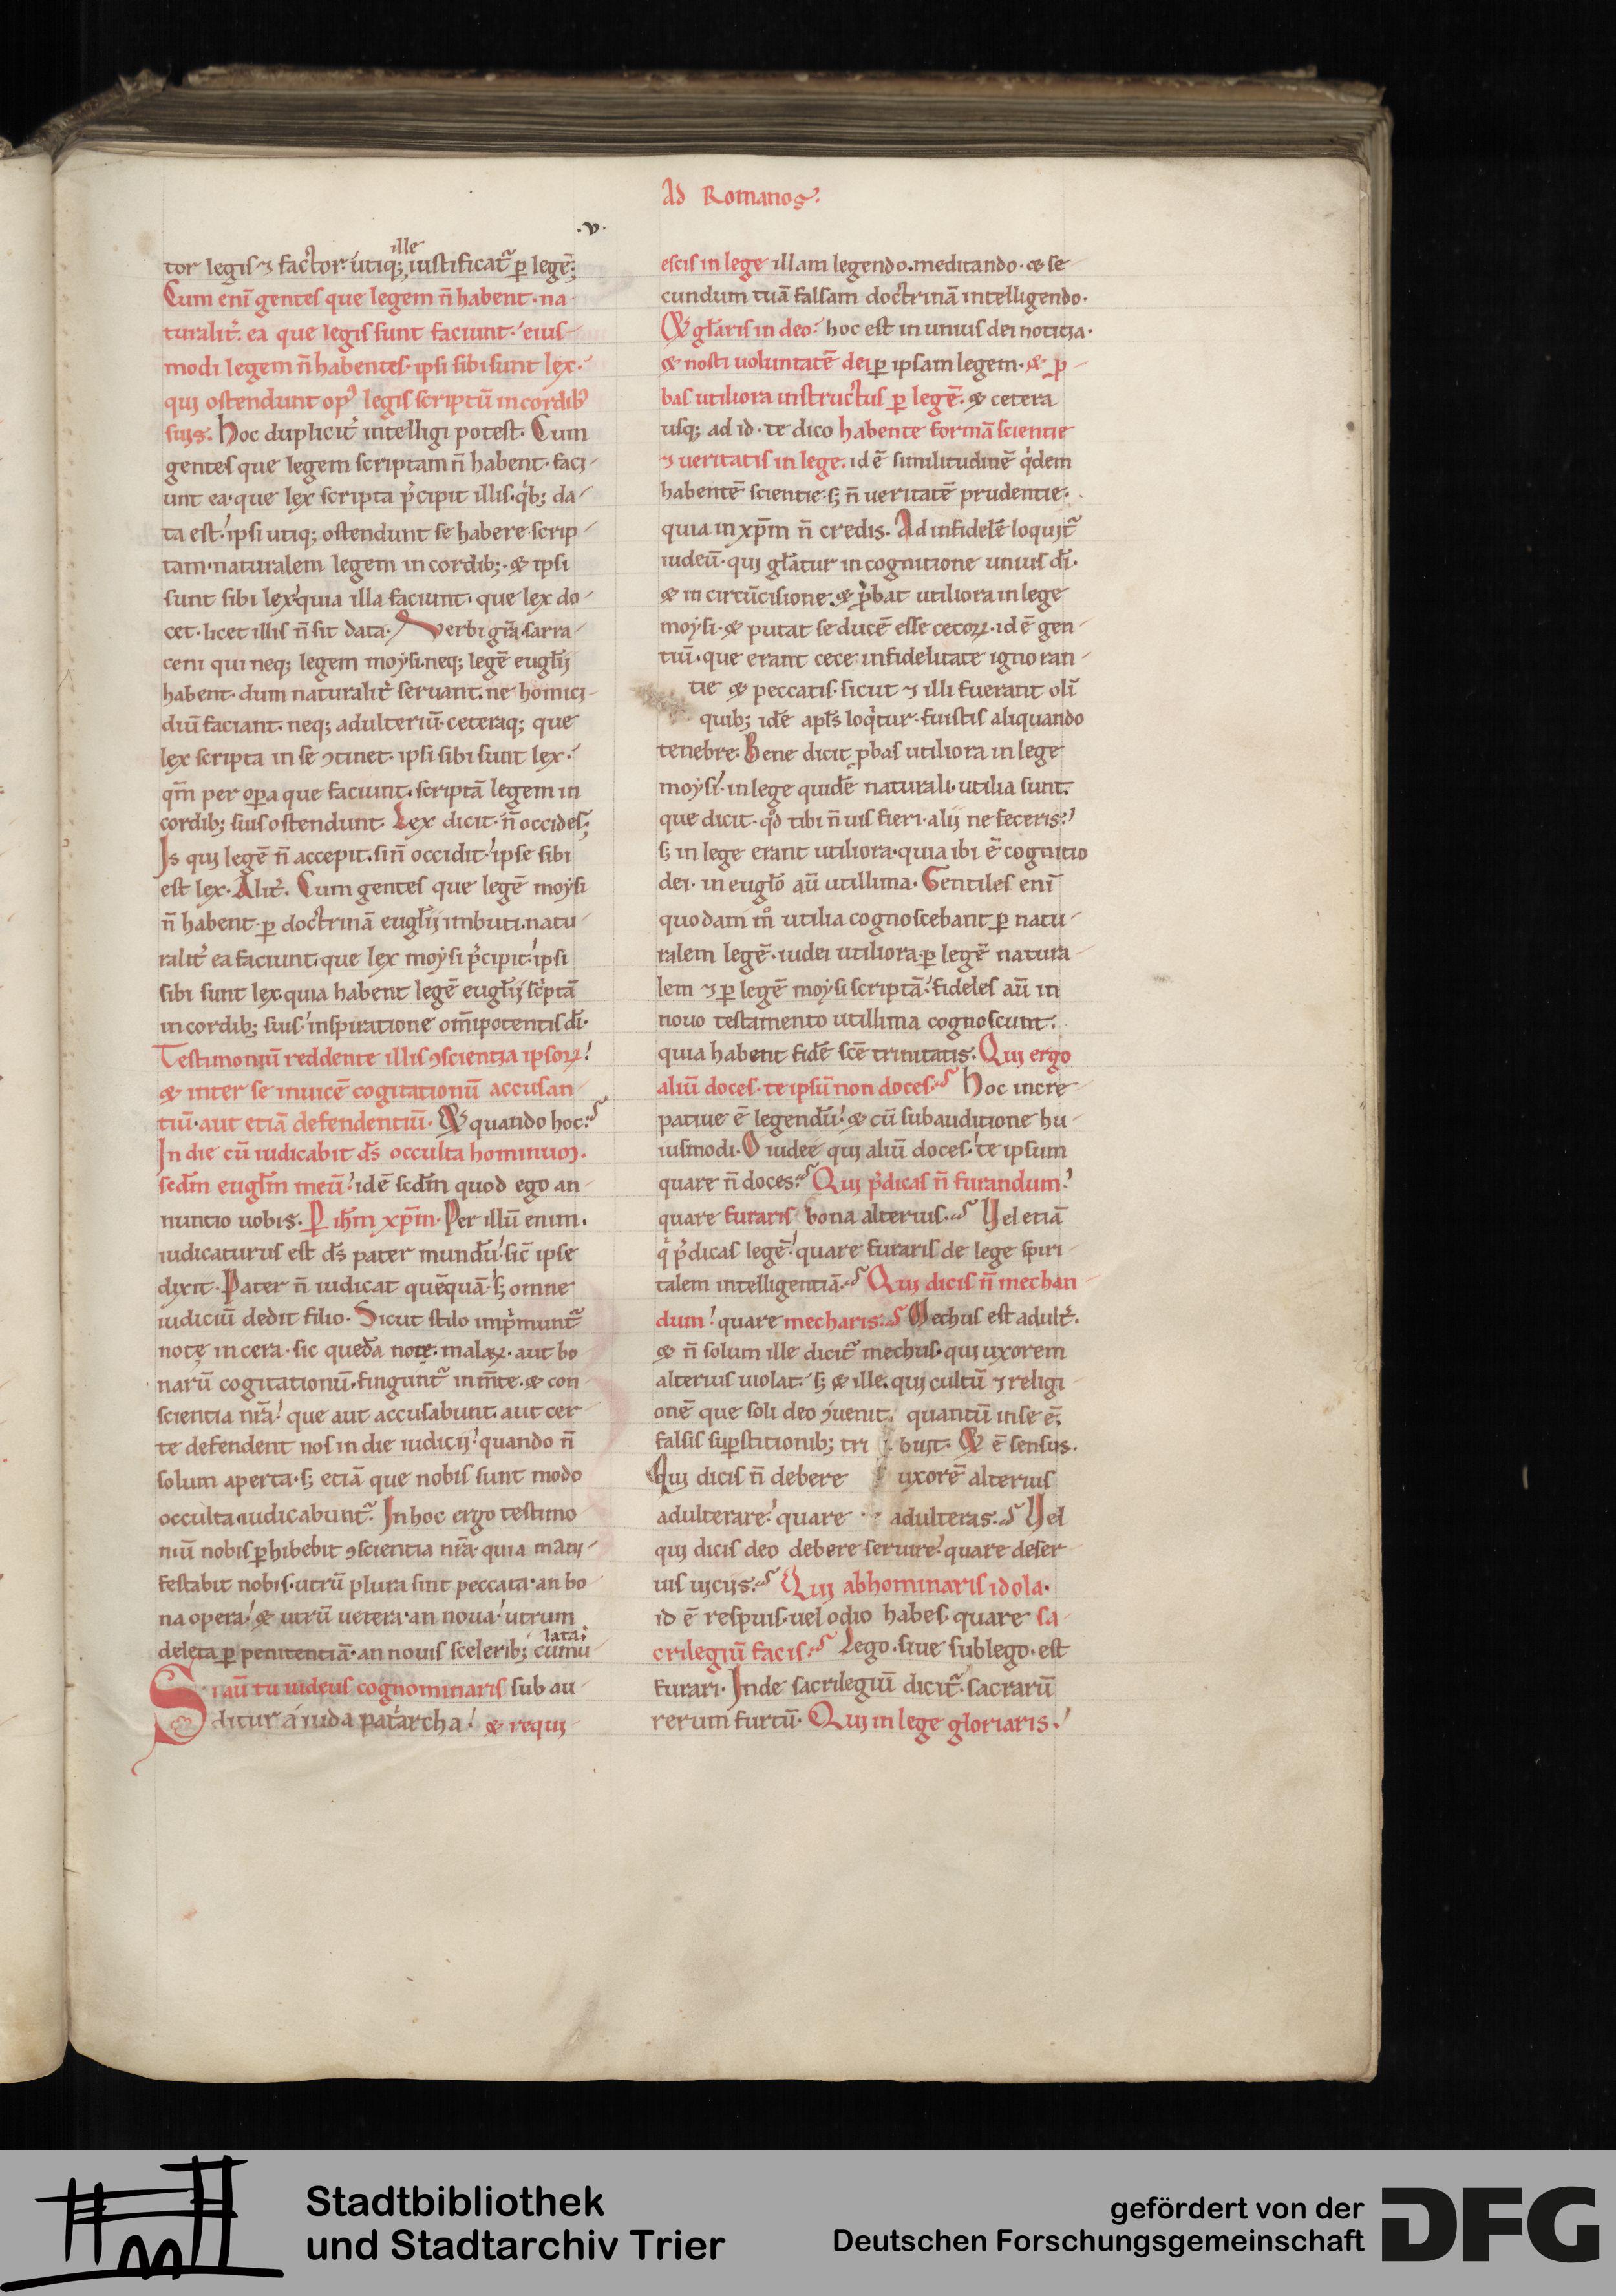 Ad Romanos.
.v.
ille
tor legis ⁊ factor. utiq; iustificat᷑ ꝑ legē;
Cum eni gentes que legem n̄ habent. na-
turalit̉. ea que legis sunt faciunt. eius-
modi legem n̄ habentes. ipsi sibi sunt lex.
qui ostendunt opꝰ legis scriptū in cordibꝰ
suis. Hoc duplicit̉ intelligi potest. Cum
gentes que legem scriptam n̄ habent. faci-
unt ea. que lex scripta p̉cipit illis. qͥb; da-
ta est. ipsi utiq; ostendunt se habere scrip-
tam. naturalem legem in cordib;. & ipsi
sunt sibi lex. quia illa faciunt. que lex do-
cet. licet illis n̄ sit data. Verbi gr̄a. sarra-
ceni qui neq; legem moẏsi. neq; legē eugl̄ij
habent. dum naturalit̉ seruant. ne homici-
diū faciant. neq; adulteriū. ceteraq; que
lex scripta in se ꝯtinet. ipsi sibi sunt lex.
qm̄ per opa que faciunt. scriptā legem in
cordib; suis ostendunt. Lex dicit. n̄ occides;
Is qui legē n̄ accepit. si n̄ occidit. ipse sibi
est lex. Alit̉. Cum gentes que legē moẏsi
n̄ habent. ꝑ doctrinā eugl̄ij imbuti. natu-
ralit̉ ea faciunt. que lex moẏsi p̉cipit. ipsi
sibi sunt lex. quia habent legē eugl̄ij scͥptā
in cordib; suis. inspiratione om̄ipotentis dī.
Testimoniū reddente illis ꝯscientia ipsoꝝ.
& inter se inuicē cogitationū accusan-
tiū. aut etiā defendentiū. Et quando hoc.
In die cū iudicabit ds̄ occulta hominum.
scdm̄ eugl̄m meū. idē scdm̄ quod ego an-
nuntio uobis. P ihm̄ xpm̄. Per illū enim.
iudicaturus est ds̄ pater mundū. sic̄ ipse
dixit. Pater n̄ iudicat quēquā. s; omne
iudiciū dedit filio. Sicut stilo impͥmunt᷑
notę in cera. sic quedā notę. malaꝝ. aut bo
narū cogitationū. fingunt᷑ in m̄te. & con-
scientia nr̄a. que aut accusabunt. aut cer-
te defendent nos in die iudicij. quando n̄
solum aperta. s; etiā que nobis sunt modo
occulta. iudicabunt᷑. In hoc ergo testimo
niū nobis ꝑhibebit ꝯscientia nr̄a. quia mani-
festabit nobis. utrū plura sint peccata. an bo
na opera. & utrū uetera. an noua. utrum
deleta ꝑ penitentiā. an nouis scelerib; cumu
lata;
Si aū tu iudeus cognominaris sub au-
ditur a iuda patͥarcha. & requi-
escis in lege illam legendo. meditando. & se
cundum tuā falsam doctrinā intelligendo.
Et gl̄aris in deo. hoc est in unius dei noticia.
& nosti uoluntatē dei ꝑ ipsam legem. & ꝓ-
bas utiliora instructus ꝑ legē. & cetera
usq; ad id. te dico habente formā scientie
⁊ ueritatis in lege. id ē similitudinē qͥdem
habentē scientie. s; n̄ ueritatē prudentie.
quia in xpm̄ n̄ credis. Ad infidelē loquit᷑
iudeū. qui gl̄atur in cognitione unius dī.
& in circūcisione. & ꝓbat utiliora in lege
moẏsi. & putat se ducē esse cecoꝝ. id ē gen-
tiū. que erant cece infidelitate ignoran-
tie & peccatis. sicut ⁊ illi fuerant olī
quib; idē apls̄ loqͥtur. fuistis aliquando
tenebre. Bene dicit ꝓbas utiliora in lege
moẏsi. in lege quidē naturali. utilia sunt.
que dicit. qd̄ tibi n̄ uis fieri. alij ne feceris.
s; in lege erant utiliora. quia ibi ē cognitio
dei. in euglō aū utillima. Gentiles enī
quodam mͦ utilia cognoscebant ꝑ natu-
ralem legē. iudei utiliora. ꝑ legē natura-
lem ⁊ ꝑ legē moẏsi scriptā. fideles aū in
nouo testamento utillima cognoscunt.
quia habent fidē scē trinitatis. Qui ergo
aliū doces. te ipsū non doces. Hoc incre-
patiue ē legendū. & cū subauditione hu-
iusmodi. O iudee qui aliū doces. te ipsum
quare n̄ doces. Qui p̉dicas n̄ furandum.
quare furaris bona alterius. Vel etiā
qͥ p̉dicas legē. quare furaris de lege spiri-
talem intelligentiā. Qui dicis n̄ mechan-
dum. quare mecharis. Mechus est adult̉.
& n̄ solum ille dicit᷑ mechus. qui uxorem
alterius uiolat. s; & ille. qui cultū ⁊ religi-
onē que soli deo ꝯuenit. quantū in se ē.
falsis suꝑstitionib; tri buit. Et ē sensus.
Qui dicis n̄ debere uxorē alterius
adulterare. quare adulteras. Vel
qui dicis deo debere seruire. quare deser-
uis uicijs. Qui abhominaris idola.
id ē respuis. uel odio habes. quare sa-
crilegiū facis. Lego. siue sublego. est
furari. Inde sacrilegiū dicit᷑. sacrarū
rerum furtū. Qui in lege gloriaris.
Stadtbibliothek
und Stadtarchiv Trier
gefördert von der
Deutschen Forschungsgemeinschaft
DFG